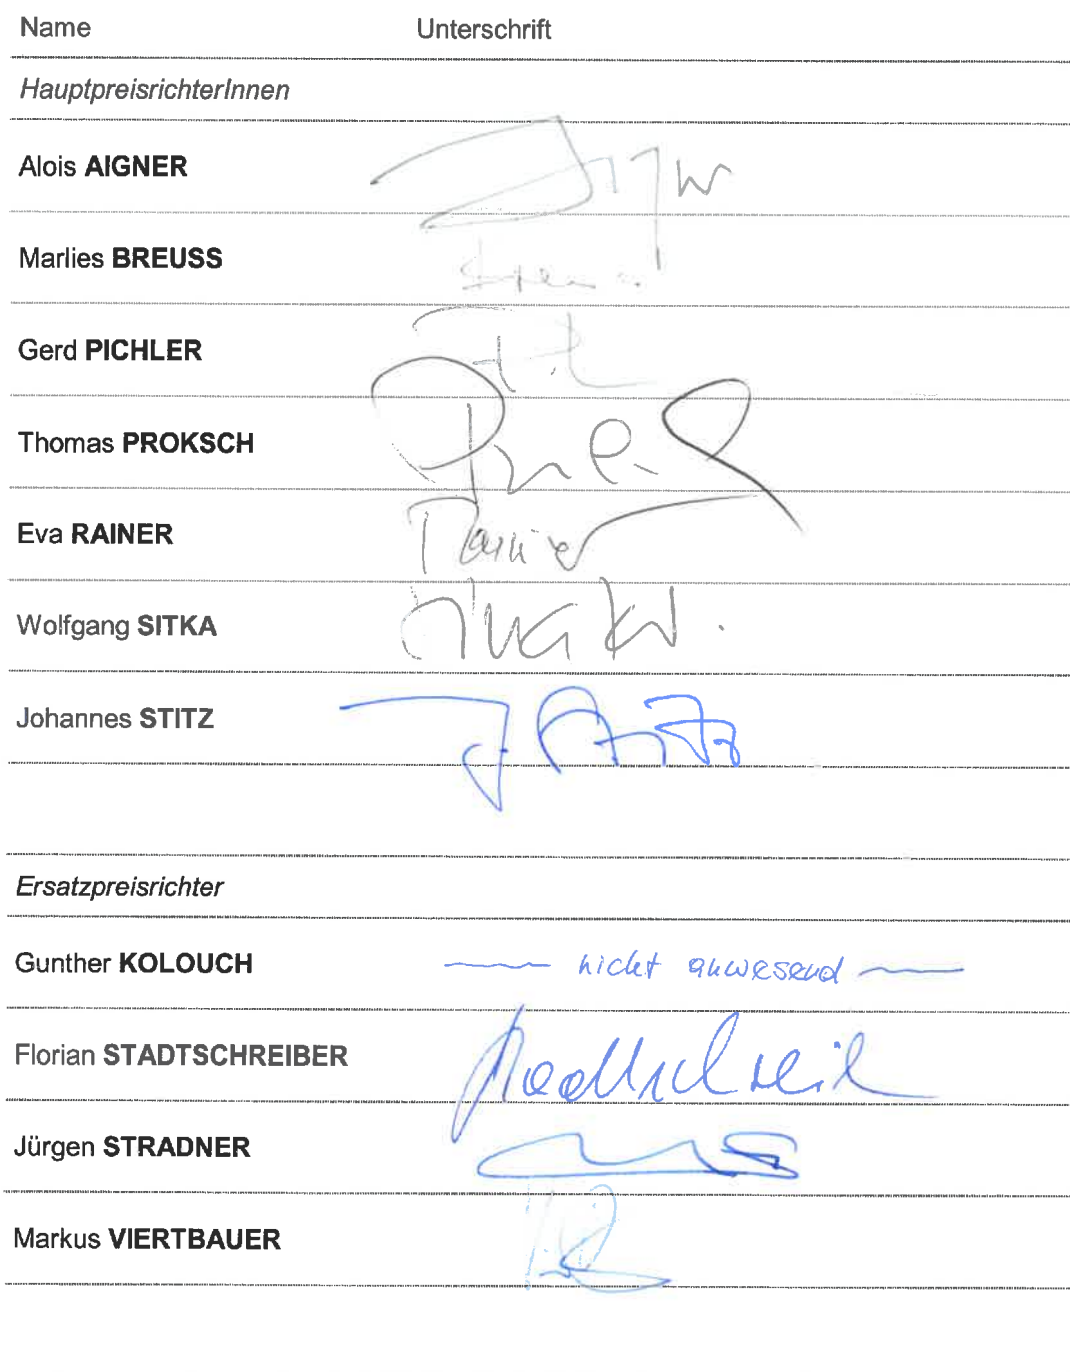 Name Unterschrift
HauptpreisrichterInnen
Alois AIGNER
Marlies BREUSS
Gerd PICHLER
Thomas PROKSCH
Eva RAINER Rainer
Wolfgang SITKA
Johannes STITZ J Stitz
Ersatzpreisrichter
Gunther KOLOUCH nicht anwesend
Florian STADTSCHREIBER
Jürgen STRADNER
Markus VIERTBAUER